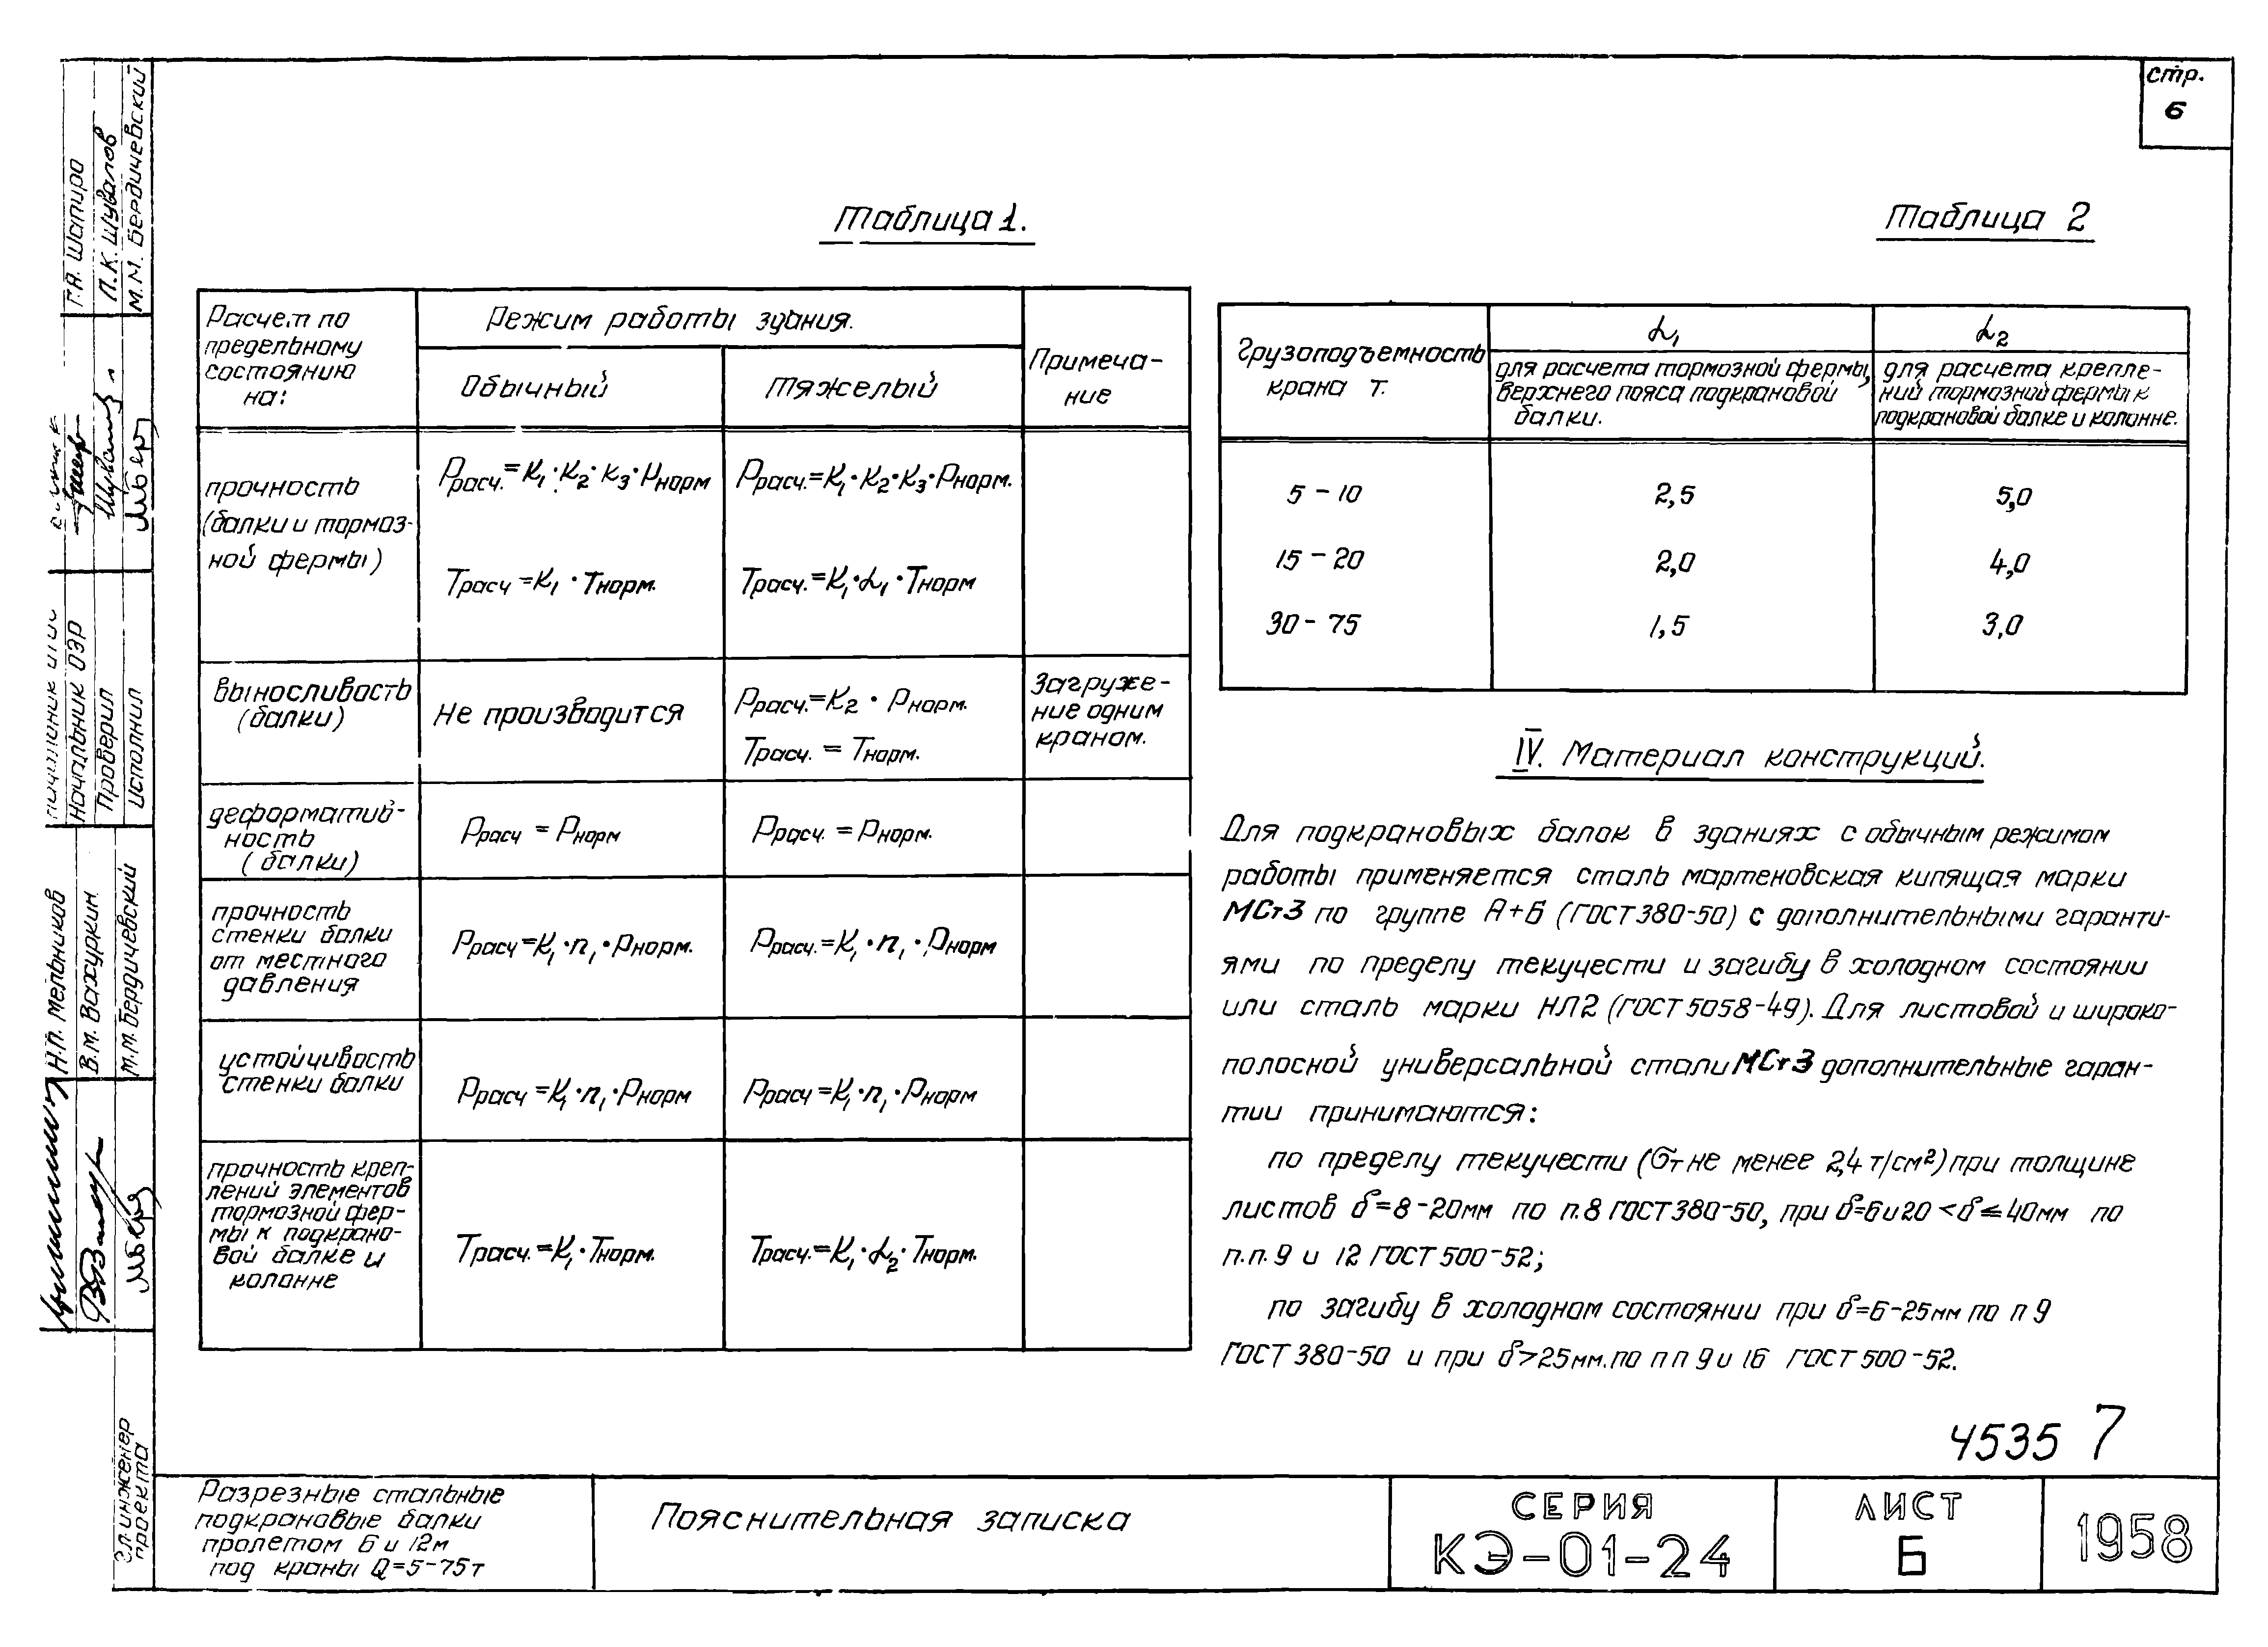 стр.
6
Таблица 1.
Расчет по
предельному
состоянию
на:
Режим работы здания.
Обычный
Тяжелый
Примеча-
ние
прочность
(балки и тормоз-
ной фермы)
Pрасч.=K₁·K₂·K₃·Pнорм
Tрасч=K₁·Tнорм.
Pрасч.=K₁·K₂·K₃·Pнорм.
Tрасч.=K₁·α₁·Tнорм
выносливость
(балки)
Не производится
Pрасч.=K₂·Pнорм.
Tрасч.=Tнорм.
Загруже-
ние одним
краном.
деформатив-
ность
(балки)
Pрасч = Pнорм
Pрасч. = Pнорм.
прочность
стенки балки
от местного
давления
Pрасч=K₁·n₁·Pнорм.
Pрасч.=K₁·n₁·Pнорм
устойчивость
стенки балки
Pрасч=K₁·n₁·Pнорм
Pрасч=K₁·n₁·Pнорм
прочность креп-
лений элементов
тормозной фер-
мы к подкрано-
вой балке и
колонне
Tрасч.=K₁·Tнорм.
Tрасч.=K₁·α₂·Tнорм.
Таблица 2
Грузоподъемность
крана т.
α₁
для расчета тормозной фермы,
верхнего пояса подкрановой
балки.
α₂
для расчета крепле-
ний тормозной фермы к
подкрановой балке и колонне.
5-10 2,5 5,0
15-20 2,0 4,0
30-75 1,5 3,0
IV. Материал конструкций.
Для подкрановых балок в зданиях с обычным режимом
работы применяется сталь мартеновская кипящая марки
МСт3 по группе А+Б (ГОСТ 380-50) с дополнительными гаранти-
ями по пределу текучести и загибу в холодном состоянии
или сталь марки НЛ2 (ГОСТ 5058-49). Для листовой и широко-
полосной универсальной стали МСт3 дополнительные гаран-
тии принимаются:
по пределу текучести (σт не менее 2,4 т/см²) при толщине
листов δ=8-20мм по п.8 ГОСТ 380-50, при δ=6 и 20<δ≤40мм по
п.п. 9 и 12 ГОСТ 500-52;
по загибу в холодном состоянии при δ=6-25мм по п 9
ГОСТ 380-50 и при δ>25мм. по п п 9 и 16 ГОСТ 500-52.
4535 7
Разрезные стальные
подкрановые балки
пролетом 6 и 12м
под краны Q=5-75т
Пояснительная записка
СЕРИЯ
КЭ-01-24
ЛИСТ
Б
1958
Г.А. Шапиро
П.К. Шувалов
М.М. Бердичевский
Начальник ОЭР
Проверил
исполнил
Н.П. Мельников
В.М. Вахуркин
М.М. Бердичевский
Гл. инженер
проекта